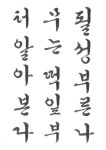 될성부른나
무는떡잎부
터알아본다